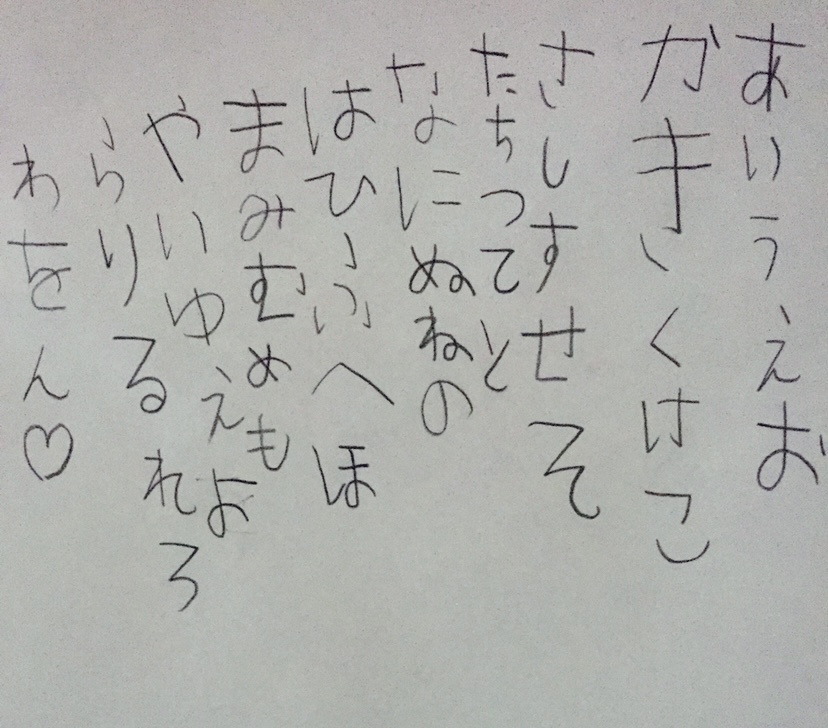 あいうえお
かきくけこ
さしすせそ
たちつてと
なにぬねの
はひふへほ
まみむめも
やいゆえよ
らりるれろ
わをん♡